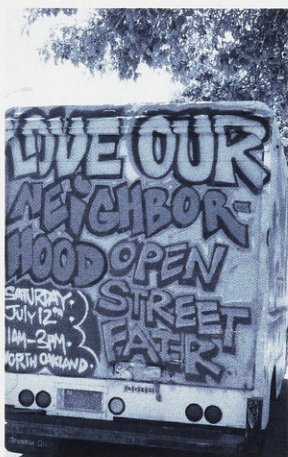 LOVE OUR
NEIGHBOR-
HOOD OPEN
STREET
FAIR!
SATURDAY,
JULY 12TH
1AM-3PM.
NORTH OAKLAND.